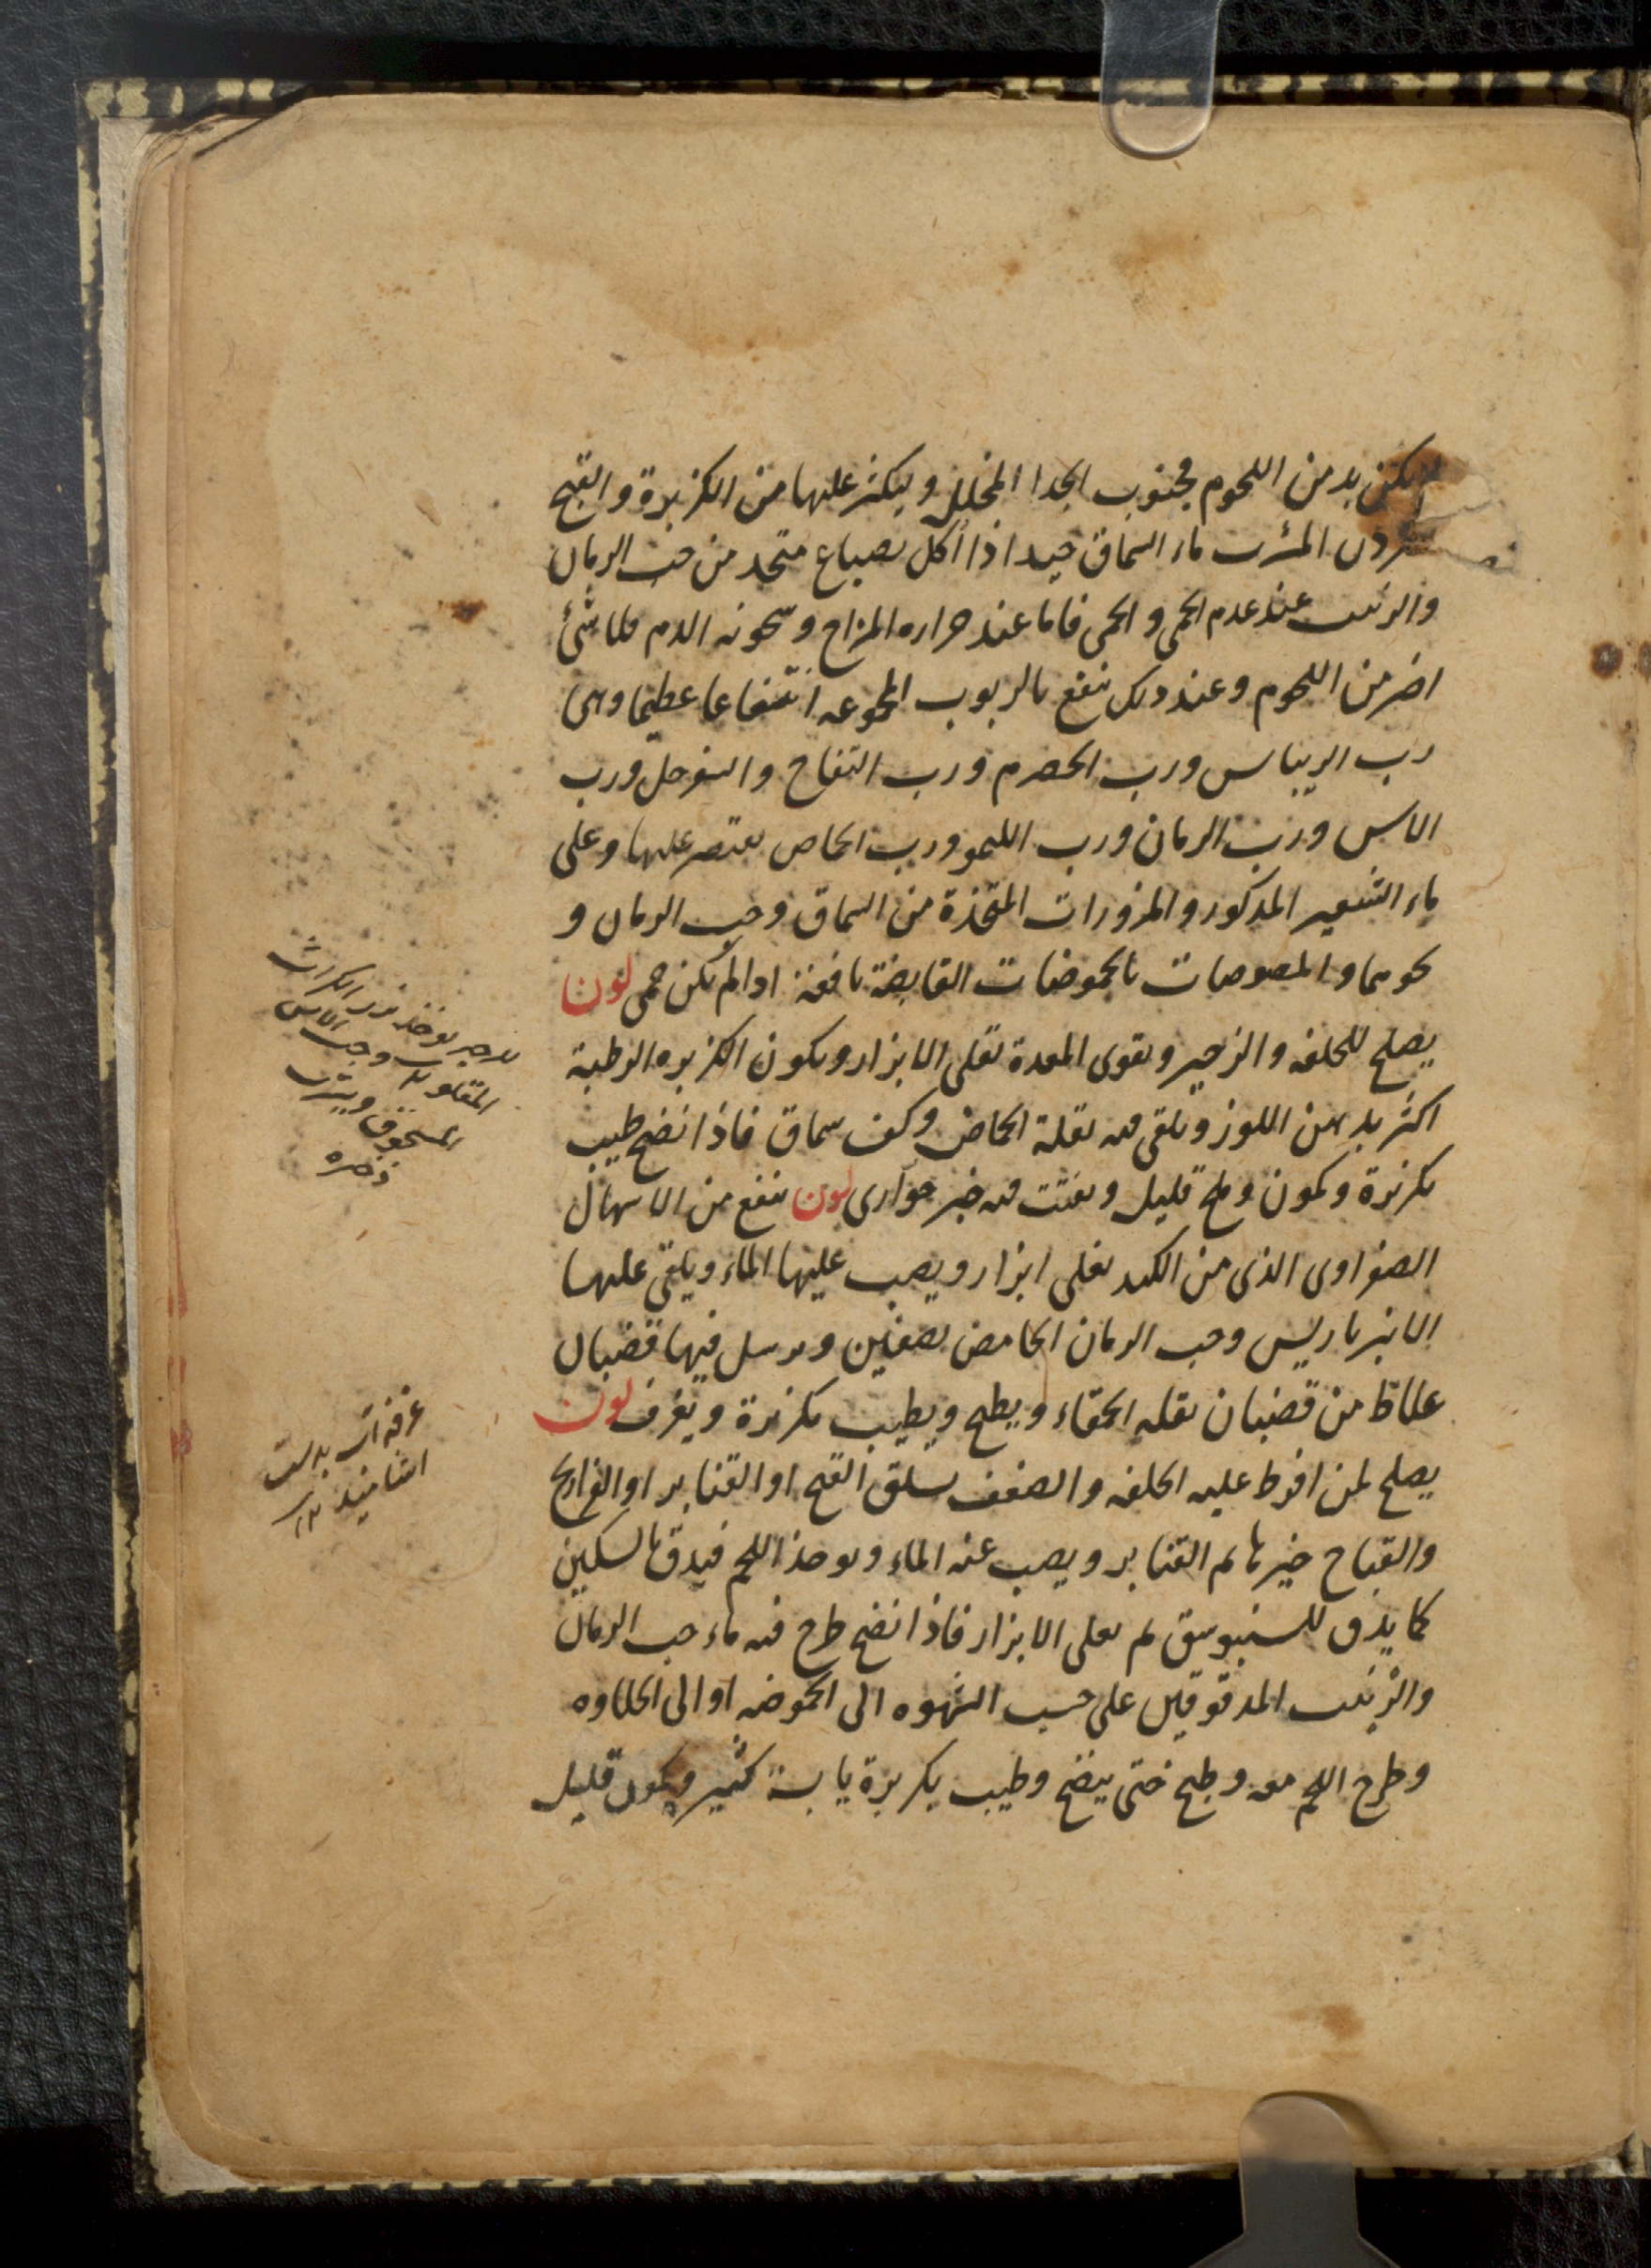 يكن بد من اللحوم فجنوب الجدا المخلل ويكثر عليها من الكزبرة والقبج
المشرب ماء السماق جيد اذا اكل بصباغ متخد من حب الرمان
والزبيب عند عدم الحمى فاما عند حراره المزاج وسخونه الدم فلا شئ
اضر من اللحوم وعند دلك ينفع بالربوب المجموعه انتفاعا عظيما وهى
رب الريباس ورب الحصرم ورب التفاح والسفرجل ورب
الاس ورب الرمان ورب الليمو ورب الحماض يقتصر عليها وعلى
ماء الشعير المدكور والمزورات المتخذة من السماق وحب الرمان و
نحوهما والمصوصات بالحموضات القابضة نافعة ادا لم يكن حمى لون
يصلح للخلفه والزحير ويقوى المعدة تغلى الابزار ويكون الكزبره الرطبة
اكثر بدهن اللوز ويلقى فيه بقلة الحماض وكف سماق فاذا نضج طيب
بكزبرة وكمون وملح قليل ويفتت فيه خبز حوارى لون ينفع من الاسهال
الصفراوى الذى من الكبد تغلى ابزار ويصب عليها الماء ويلقى عليها
الانبرباريس وحب الرمان الحامض بصفين ويرسل فيها قضبان
غلاظ من قضبان بقله الحمقاء ويطبخ ويطيب بكزبرة ويغرف لون
يصلح لمن افرط عليه الخلفه والضعف يسلق القبج او القنابر او الفراريج
والقباج خيرها ثم القنابر ويصب عنه الماء ويوخذ اللحم فيدق بالسكين
كما يدق للسنبوسق ثم يغلى الابزار فاذا نضج طرح فيه ماء حب الرمان
والزبيب المدقوقين على حسب الشهوه الى الحموضه او الى الحلاوه
وطرح اللحم معه وطبخ حتى ينضج وطيب بكزبرة يابسة كثير وبكمون قليل
للزحير يوخذ بزر الكراث
المقلو وحب الاس
المسحوق ويشرب
غرفه اب بدست
اشاميدن